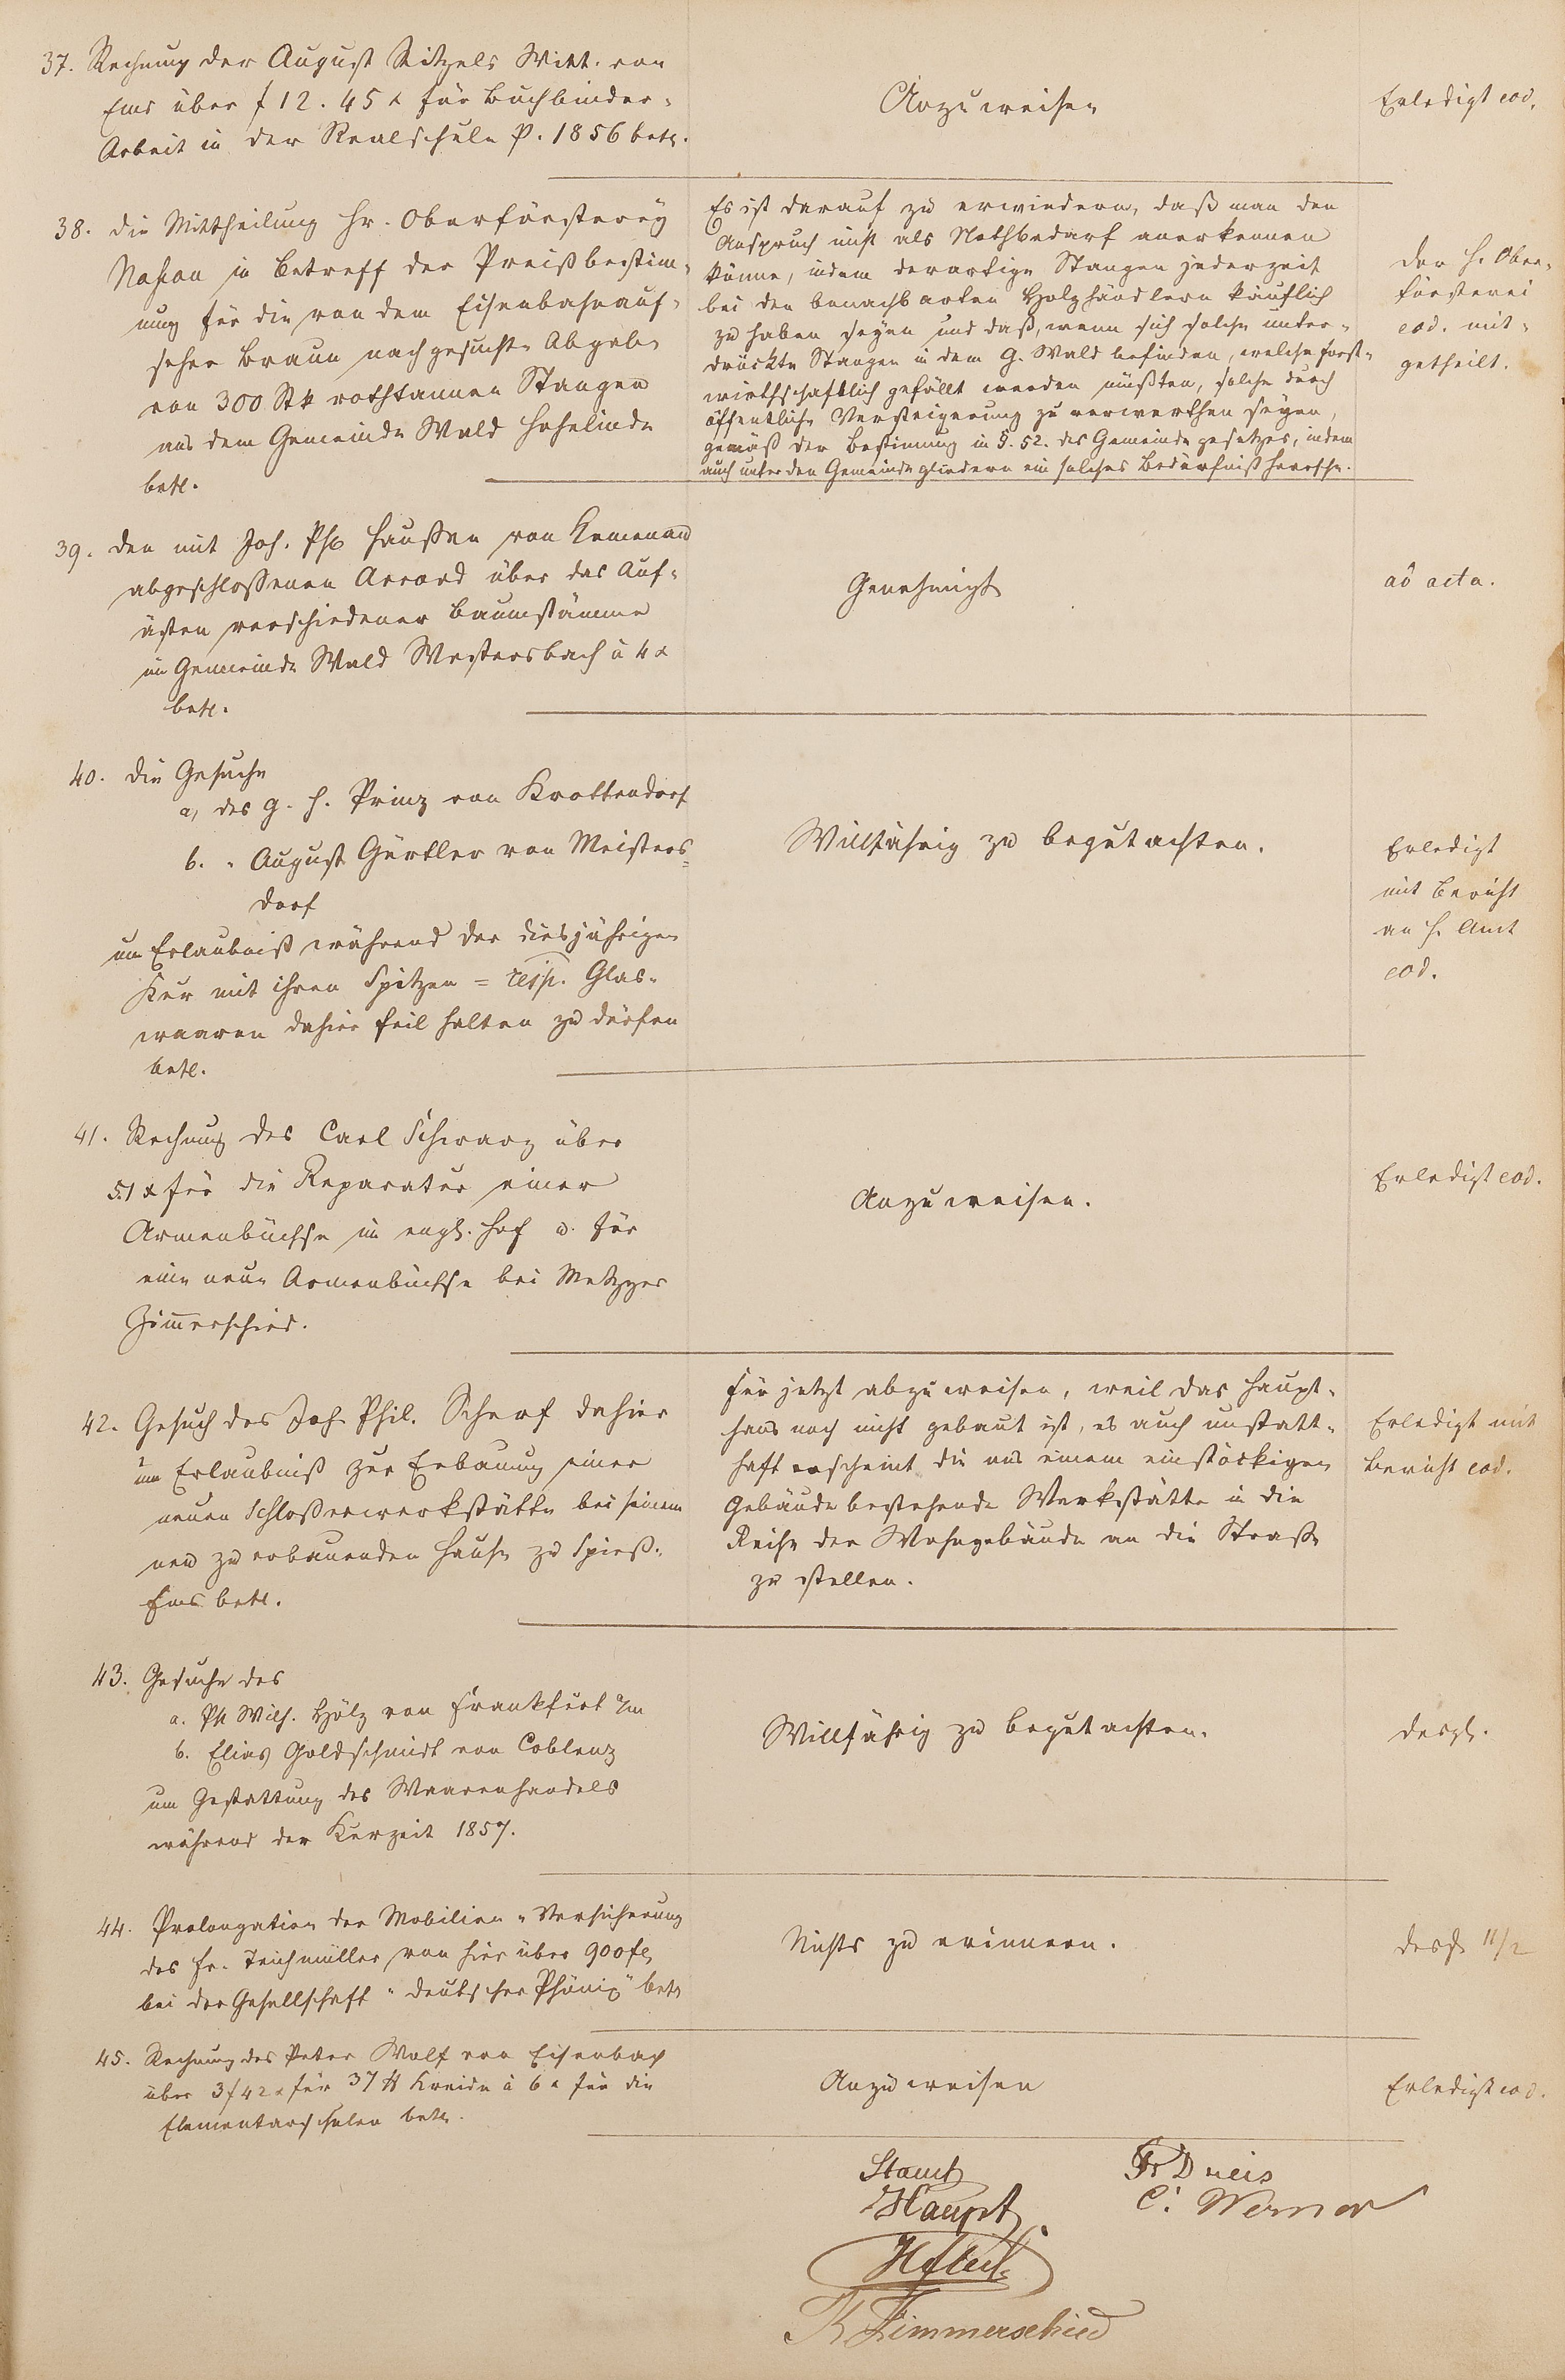 37. Rechnung der August Ritzels Witt. von
Ems über f 12. 45 x für Buchbinder-
Arbeit in der Realschule p. 1856 betr.
Anzuweisen
Erledigt eod.
38. Die Mittheilung Hr. Oberförsterey
Nassau in Betreff der Preißbestim-
mung für die von dem Eisenbahnauf-
seher Braun nachgesuchte Abgabe
von 300 Stk rothtannen Stangen
aus dem Gemeinde Wald Hohelinde
betr.
Es ist darauf zu erwiedern, daß man den
Anspruch nicht als Nothbedarf anerkennen
könne, indem derartige Stangen jederzeit
bei den benachbarten Holzhändlern käuflich
zu haben seyen und daß, wenn sich solche unter-
drückte Stangen in dem G. Wald befinden, welche forst-
wirthschaftlich gefällt werden müßten, solche durch
öffentliche Versteigerung zu verwerthen seyen,
gemäß der Bestimmung in §. 52. des Gemeindegesetzes, indem
auch unter den Gemeindegliedern ein solches Bedürfniß herrsche.
Der H. Ober-
försterei
eod. mit-
getheilt.
39. Den mit Joh. Ph. Haußen von Kemenau
abgeschlossenen Accord über das Auf-
ästen verschiedener Baumstämme
im Gemeinde Wald Westersbach à 4 x
betr.
Genehmigt
ad acta.
40. Die Gesuche
a, des G. H. Prinz von Krottendorf
b. " August Gürtler von Meisters-
dorf
um Erlaubniß während der diesjährigen
Kur mit ihren Spitzen = resp. Glas-
waaren dahier feil halten zu dürfen
betr.
Willfährig zu begutachten.
Erledigt
mit Bericht
an H. Amt
eod.
41. Rechnung des Carl Schwarz über
51 x für die Reparatur einer
Armenbüchse im engl. Hof u. für
eine neue Armenbüchse bei Metzger
Zimerschied.
Anzuweisen.
Erledigt eod.
42. Gesuch des Joh. Phil. Scherf dahier
um Erlaubniß zur Erbauung einer
neuen Schloßerwerkstätte bei seinem
neu zu erbauenden Hause zu Spieß-
Ems betr.
Für jetzt abzuweisen, weil das Haupt-
haus noch nicht gebaut ist, es auch unstatt-
haft erscheint die aus einem einstöckigen
Gebäude bestehende Werkstätte in die
Reihe der Wohngebäude an die Straße
zu stellen.
Erledigt mit
Bericht eod.
43. Gesuche des
a. Ph Wilh. Hölz von Frankfurt a/m
b. Elias Goldschmidt von Coblenz
um Gestattung des Waarenhandels
während der Kurzeit 1857.
Willfährig zu begutachten.
desgl.
44. Prolongation der Mobilien-Versicherung
des Fr. Teichmüller von hier über 900 fl
bei der Gesellschaft "Deutscher Phönix" betr
Nichts zu erinnern.
desgl 11/2
45. Rechnung des Peter Wolf von Eisenbach
über 3 f 42 x für 37 ℔ Kreide à 6 x für die
Elementarschulen betr.
Anzuweisen
Erledigt eod.
Haupt
C. Werner
K Zimmerschied